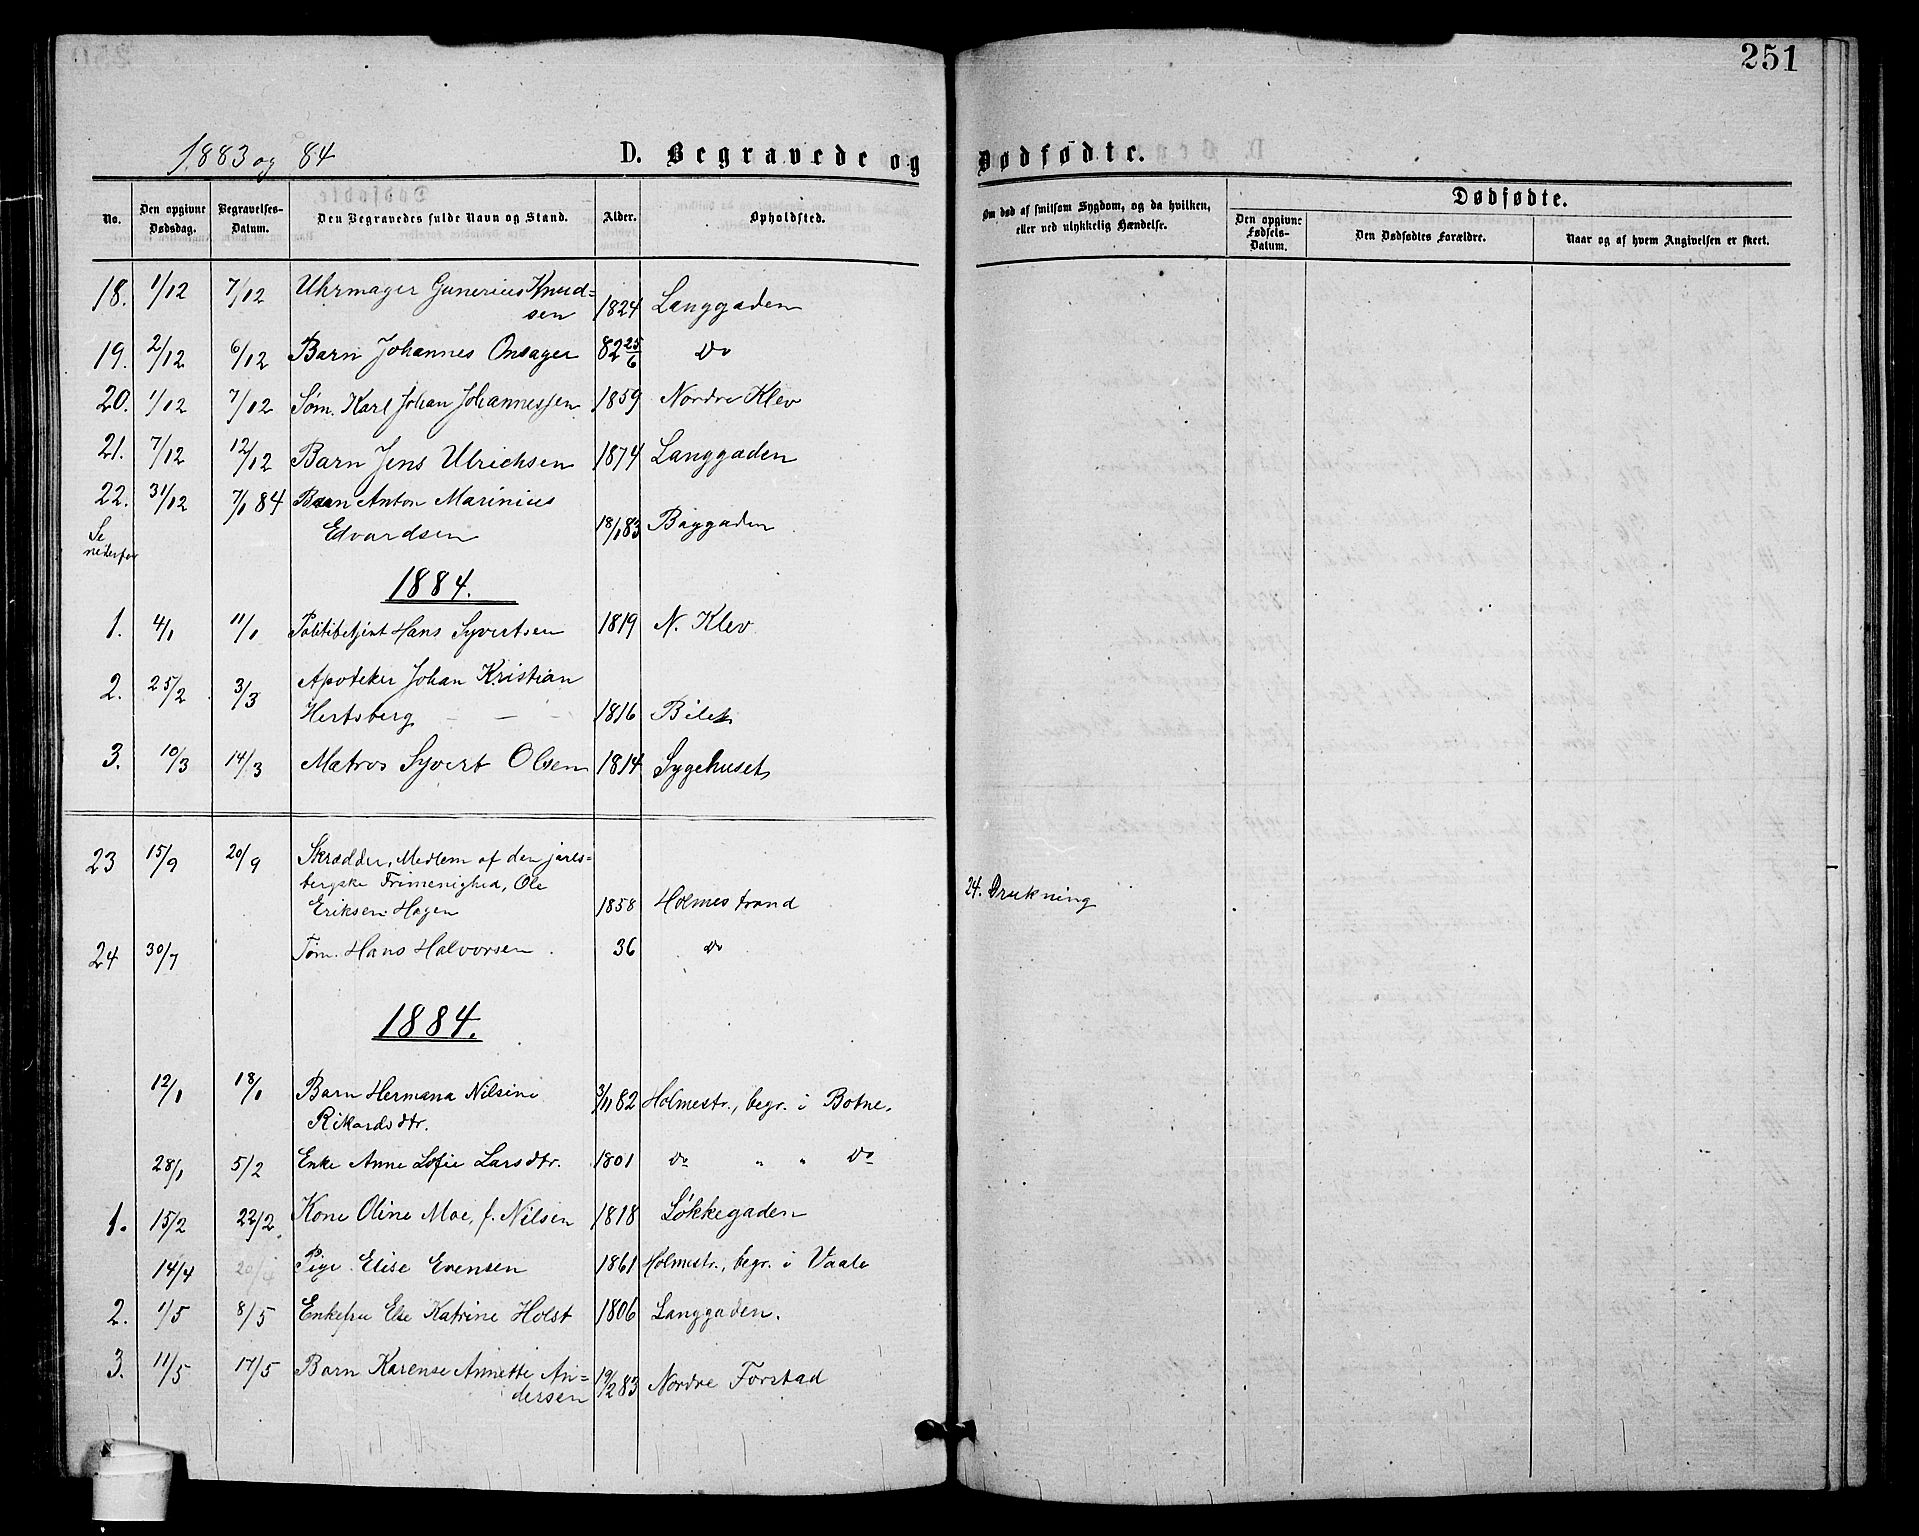 251
1883 og 84
D. Begravede og Dødfødte.
No.
Den opgivne Dødsdag.
Begravelses-Datum.
Den Begravedes fulde Navn og Stand.
Alder.
Opholdsted.
Om død af smitsom Sygdom, og da hvilken, eller ved ulykkelig Hændelse.
Dødfødte.
Den opgivne Fødsels-Datum.
Den Dødfødtes Forældre.
Naar og af hvem Angivelsen er skeet.
18. 1/12 7/12 Uhrmager Gunerius Knud=
sen 1824 Langgaden
19. 2/12 6/12 Barn Johannes Onsager 82 25/6 Do
20. 1/12 7/12 Søm. Karl Johan Johannessen 1859 Nordre Klev
21. 7/12 12/12 Barn Jens Ulrichsen 1874 Langgaden
22. 31/12 7/1 84 Barn Anton Marinius
Edvardsen 18/1 83 Baggaden
Se
nedenfor
1884.
1. 4/1 11/1 Politibetjent Hans Syvertsen 1819 N. Klev
2. 25/2 3/3 Apoteker Johan Kristian
Hertsberg - - - 1816
3. 10/3 14/3 Matros Syvert Olsen 1814 Sygehuset
23 15/9 20/9 Skrædder, Medlem af den jarls-
bergske Frimenighed, Ole
Eriksen Hagen 1858 Holmestrand
24. Drukning
24 30/7 Tøm. Hans Halvorsen. 36 Do
1884.
12/1 18/1 Barn Hermana Nilsine
Rikardsdtr. 3/11 82 Holmestr., begr. i Botne.
28/1 5/2 Enke Anne Sofie Larsdtr. 1801 Do " " Do
1. 15/2 22/2. Kone Oline Moe, f. Nilsen 1818 Løkkegaden
14/4 20/4 Pige Elise Evensen 1861 Holmestr., begr. i Vaale
2. 1/5 8/5 Enkefru Else Katrine Holst 1806 Langgaden.
3. 11/5 17/5 Barn Karense Annette An=
dersen 19/2 83 Nordre Forstad